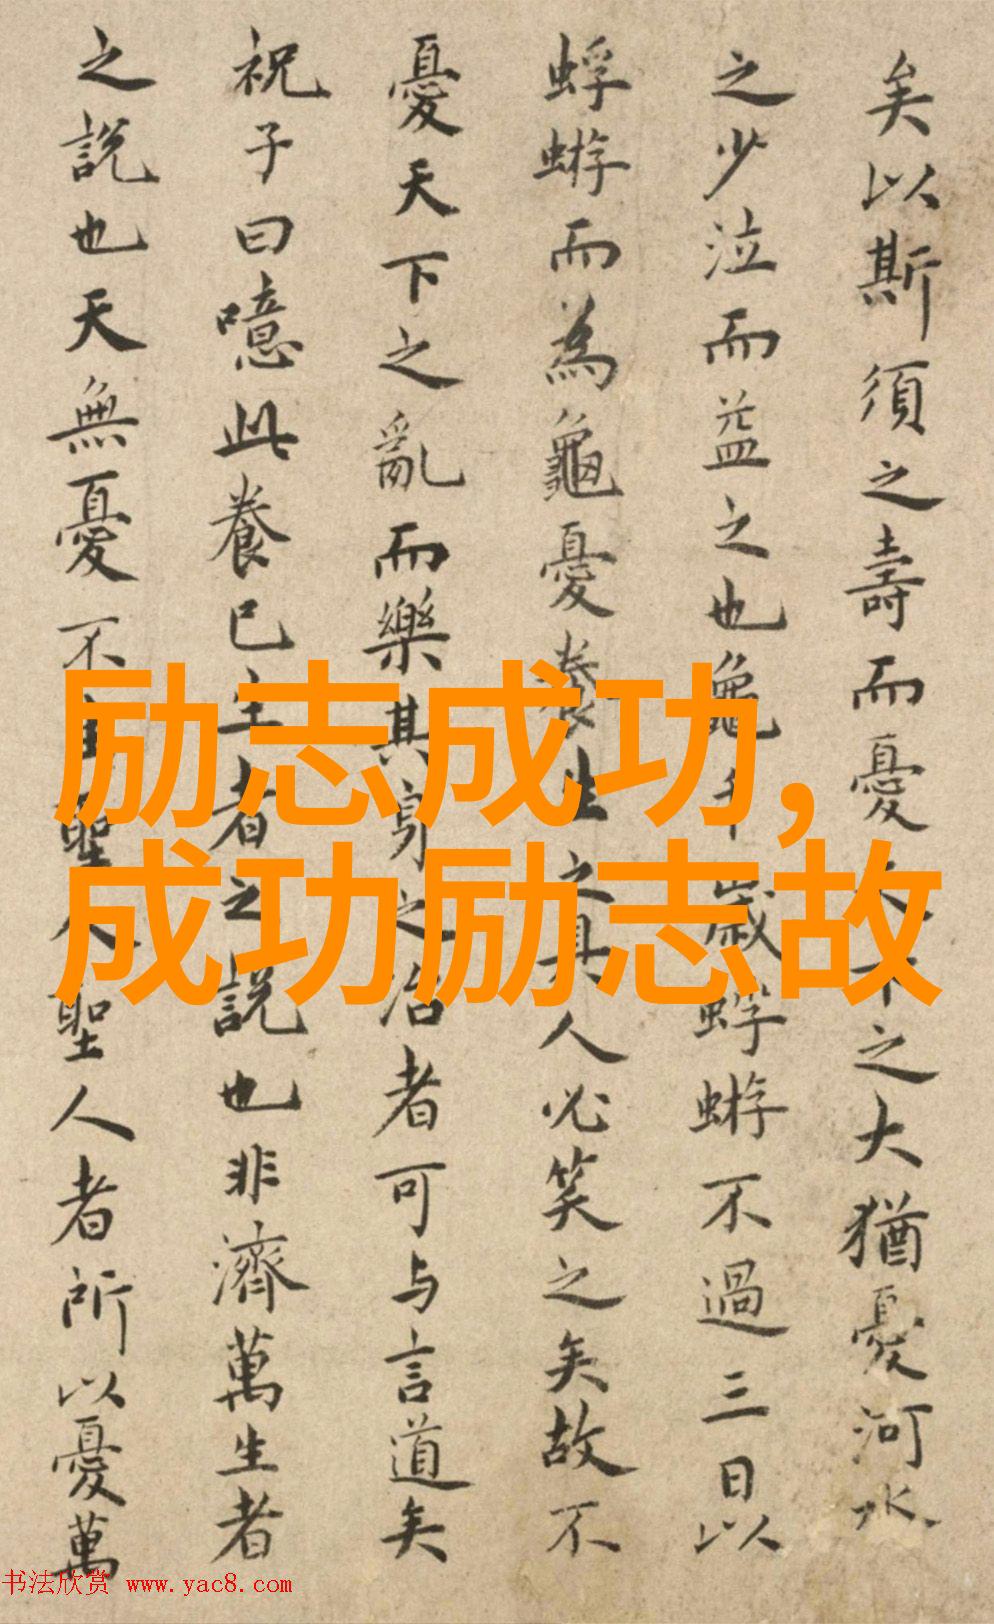 矣以斯須之壽而憂天下之大猶憂河水
之少泣而益之也龜千歲蜉蝣不過三日以
蜉蝣而為龜憂養生之具人必笑之矣故不
憂天下之亂而樂其身之治者可与言道矣
祝子曰噫此養己生者之說也非濟萬生者
之說也天無憂不生聖人聖人者所以憂萬
励志成功,
成功励志故
书法欣赏 www.yac8.com